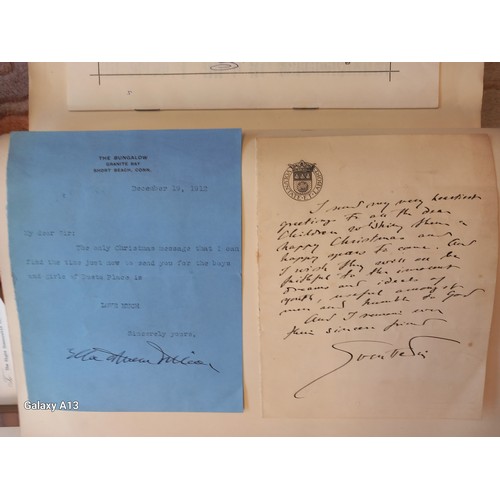 THE BUNGALOW
GRANITE BAY
SHORT BEACH, CONN.
December 19, 1912
My dear Sir:
The only Christmas message that I can
find the time just now to send you for the boys
and Girls of Place is
LOVE MUCH
Sincerely yours,
Ella Wheeler Wilcox
I send my very heartiest
greetings to all the dear
Children wishing them a
happy Christmas and
happy years to come. And
I wish they will all be
faithful to the innocent
dreams and ideals of
youth, useful amongst
men and humble to God
And I remain ever
their sincere friend
Galaxy A13